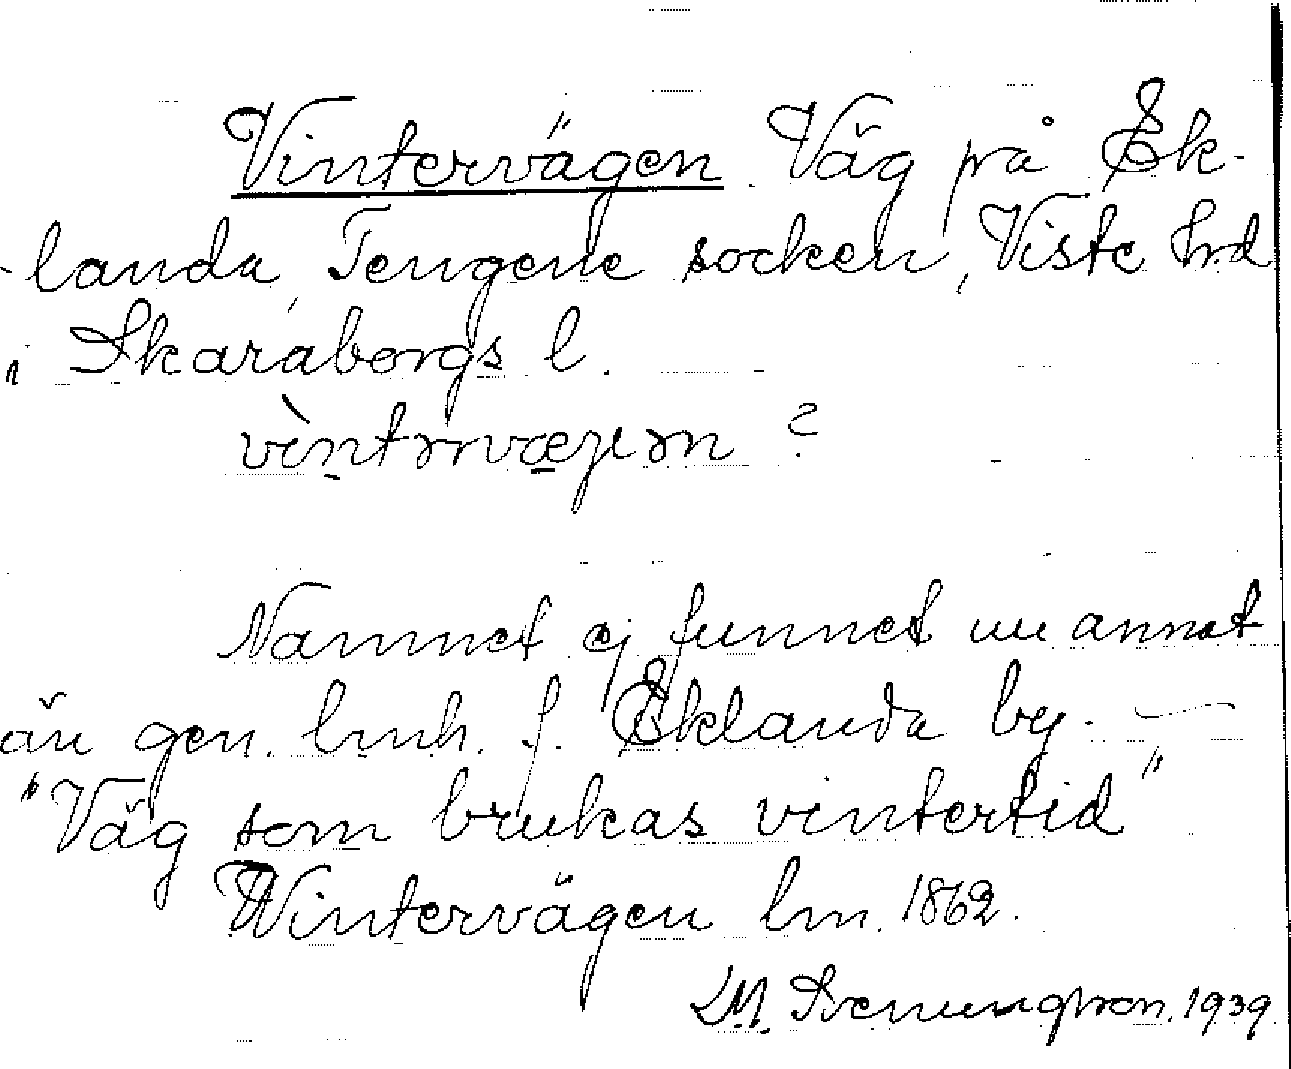 Vintervägen. Väg på Ek-
landa, Tengene socken, Viste hrd
i Skaraborgs l.
vìntərvæɡen ?
Namnet ej funnet uu annat
än gen. lmh. f. Eklanda by. —
"Väg som brukas vintertid"
Wintervägen lm. 1862.
M. Svenungsson. 1939